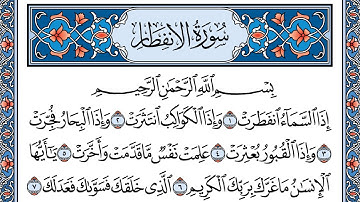 سُورَةُ الِانفِطَارِ
بِسْمِ اللَّهِ الرَّحْمَٰنِ الرَّحِيمِ
إِذَا السَّمَاءُ انفَطَرَتْ ١ وَإِذَا الْكَوَاكِبُ انتَثَرَتْ ٢ وَإِذَا الْبِحَارُ فُجِّرَتْ
٣ وَإِذَا الْقُبُورُ بُعْثِرَتْ ٤ عَلِمَتْ نَفْسٌ مَّا قَدَّمَتْ وَأَخَّرَتْ ٥ يَا أَيُّهَا
الْإِنسَانُ مَا غَرَّكَ بِرَبِّكَ الْكَرِيمِ ٦ الَّذِي خَلَقَكَ فَسَوَّاكَ فَعَدَلَكَ ٧